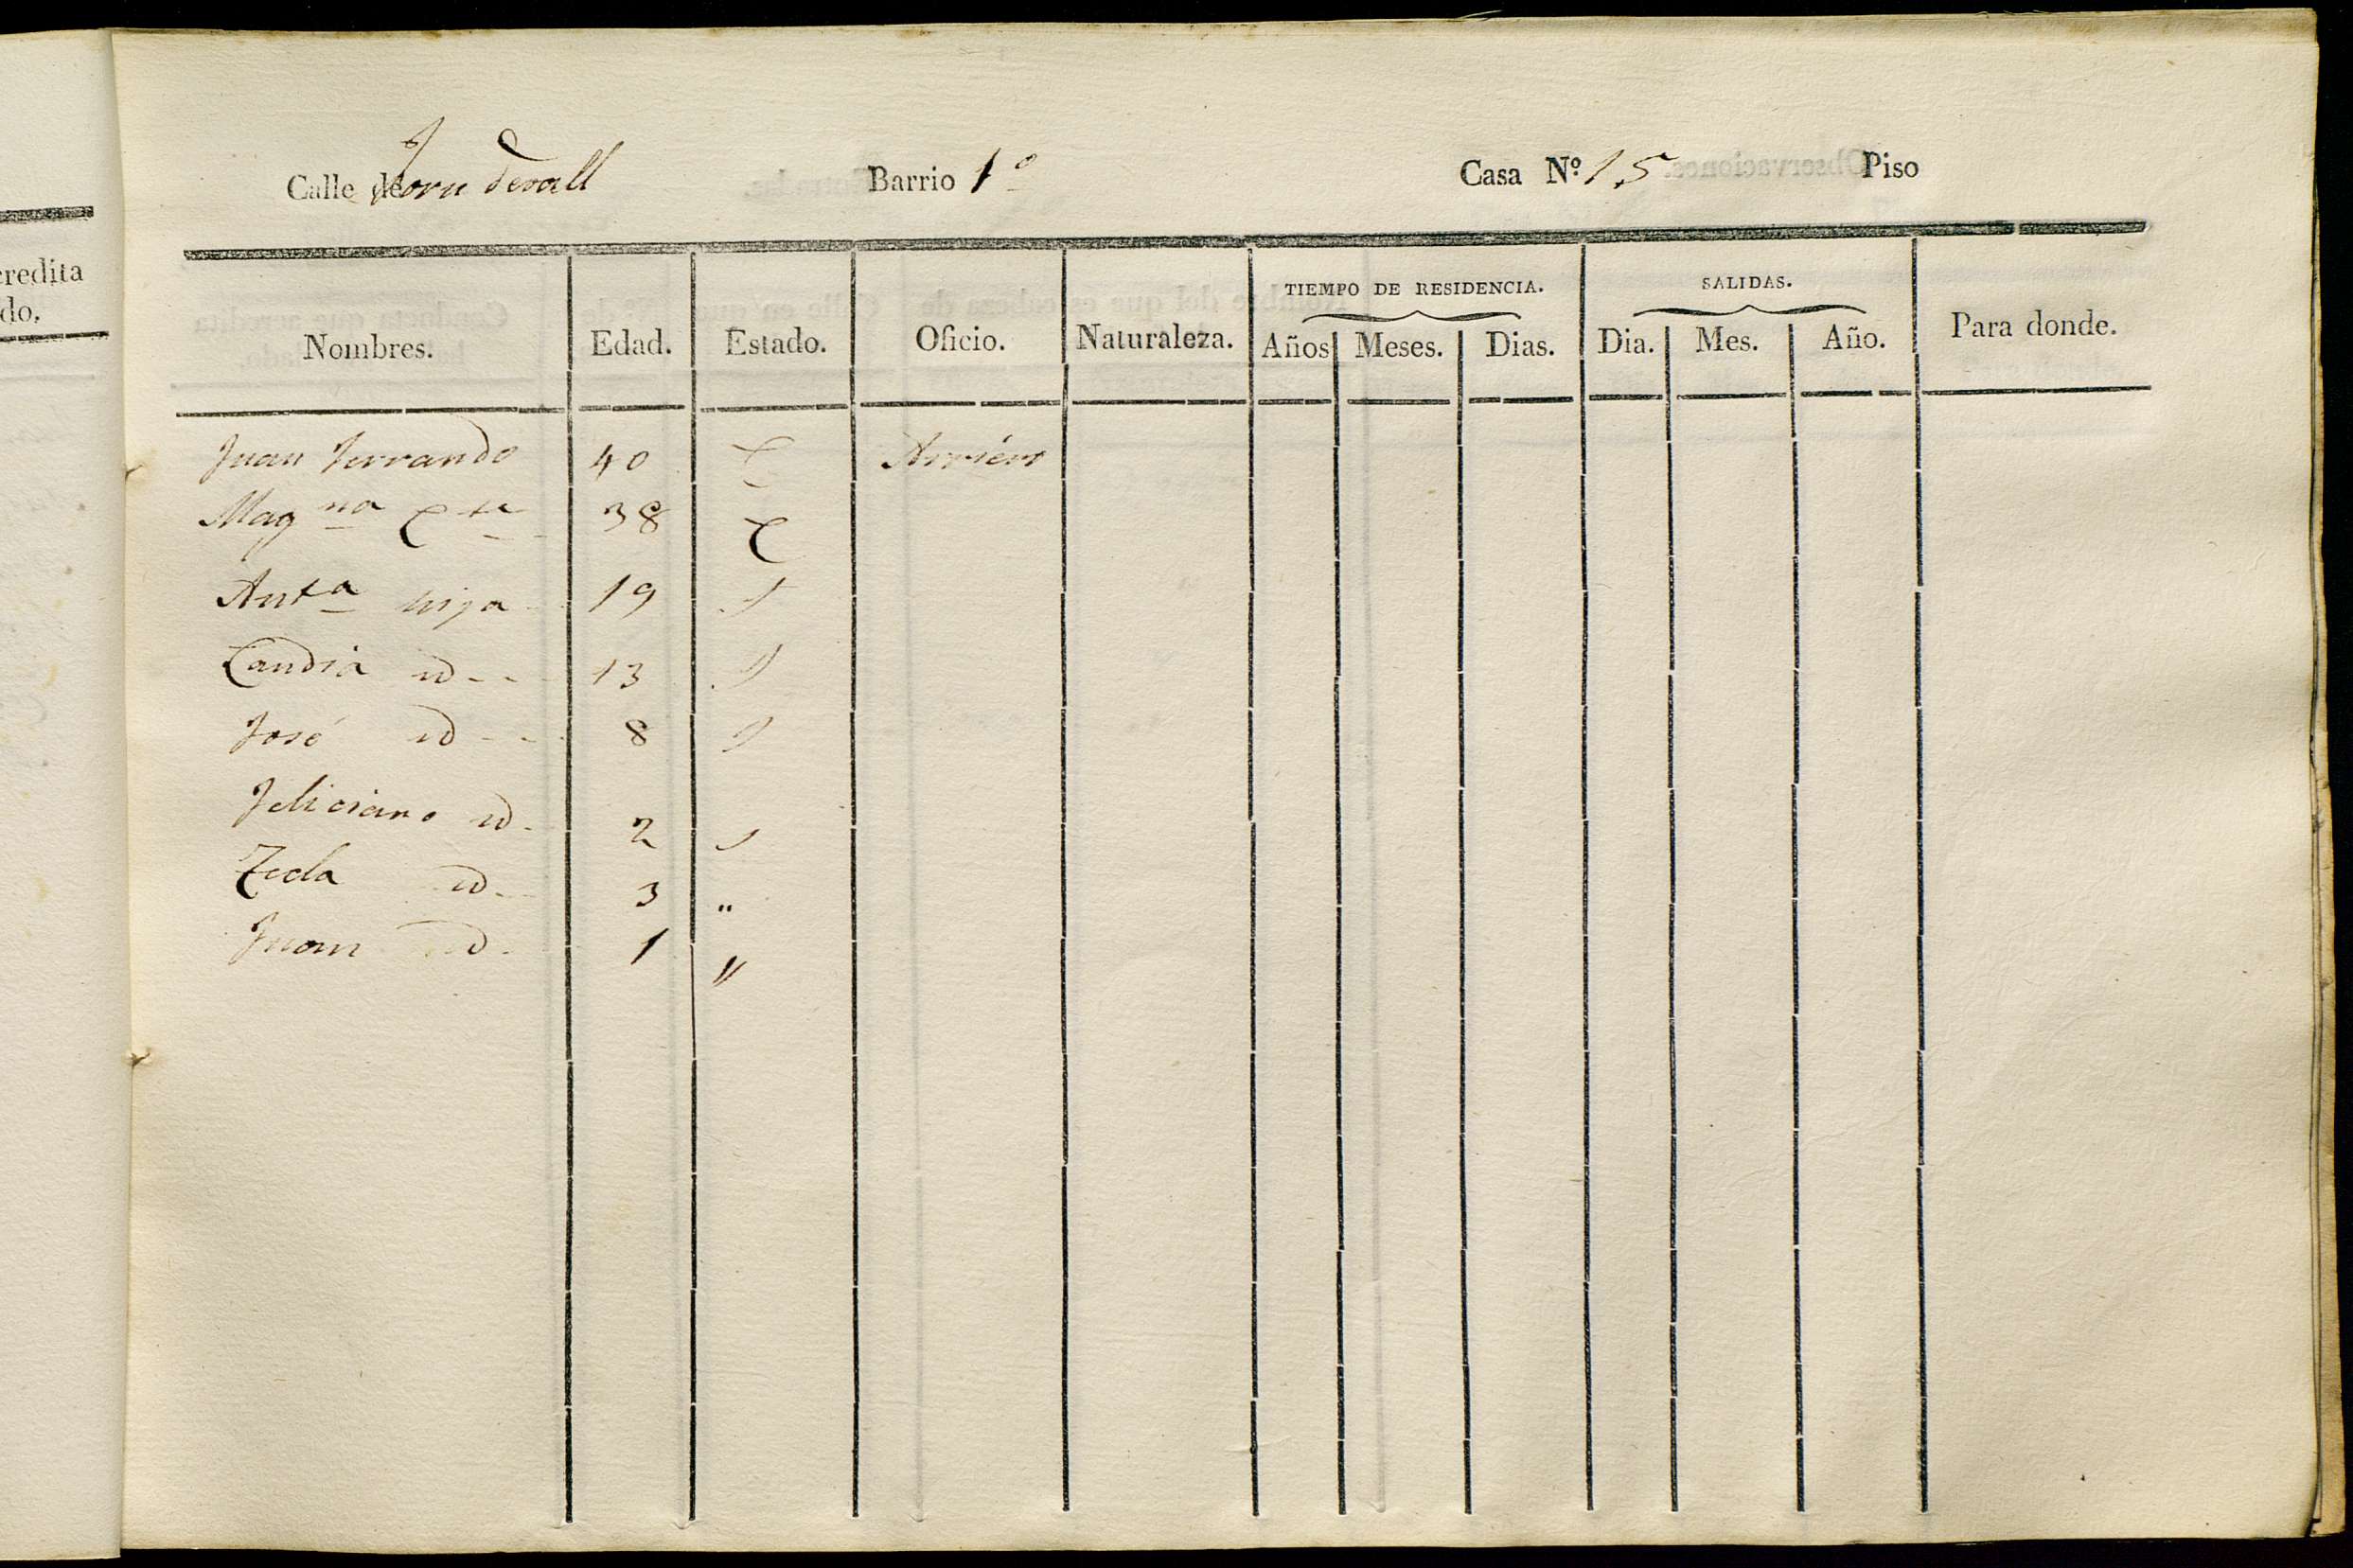 credita
do.
Calle de Forn de vall Barrio 1º Casa Nº 15 Piso
TIEMPO DE RESIDENCIA. SALIDAS.
Nombres. Edad. Estado. Oficio. Naturaleza. Años Meses. Dias. Dia. Mes. Año. Para donde.
Juan Ferrando 40 C Arriéro
Magna Cta 38 C
Anta hija 19
Candia id - - 13 "
José id - - 8 "
Feliciano id - 2 "
Tecla id - 3 "
Juan id - 1 "